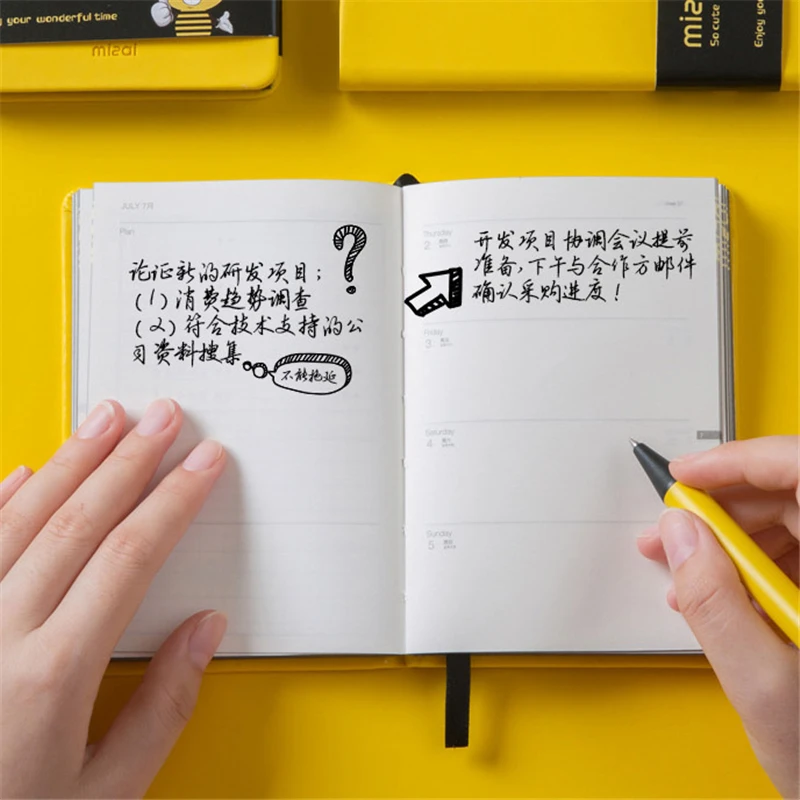 y your wonderful time
mizai
mizai
So cute
Enjoy yo
JULY 7月
Plan
论证新的研发项目；
(1)消费趋势调查
(2)符合技术支持的公
司资料搜集
不能拖延
Thursday
2
开发项目协调会议提前
准备,下午与合作方邮件
确认采购进度！
Friday
3
Saturday
4
Sunday
5